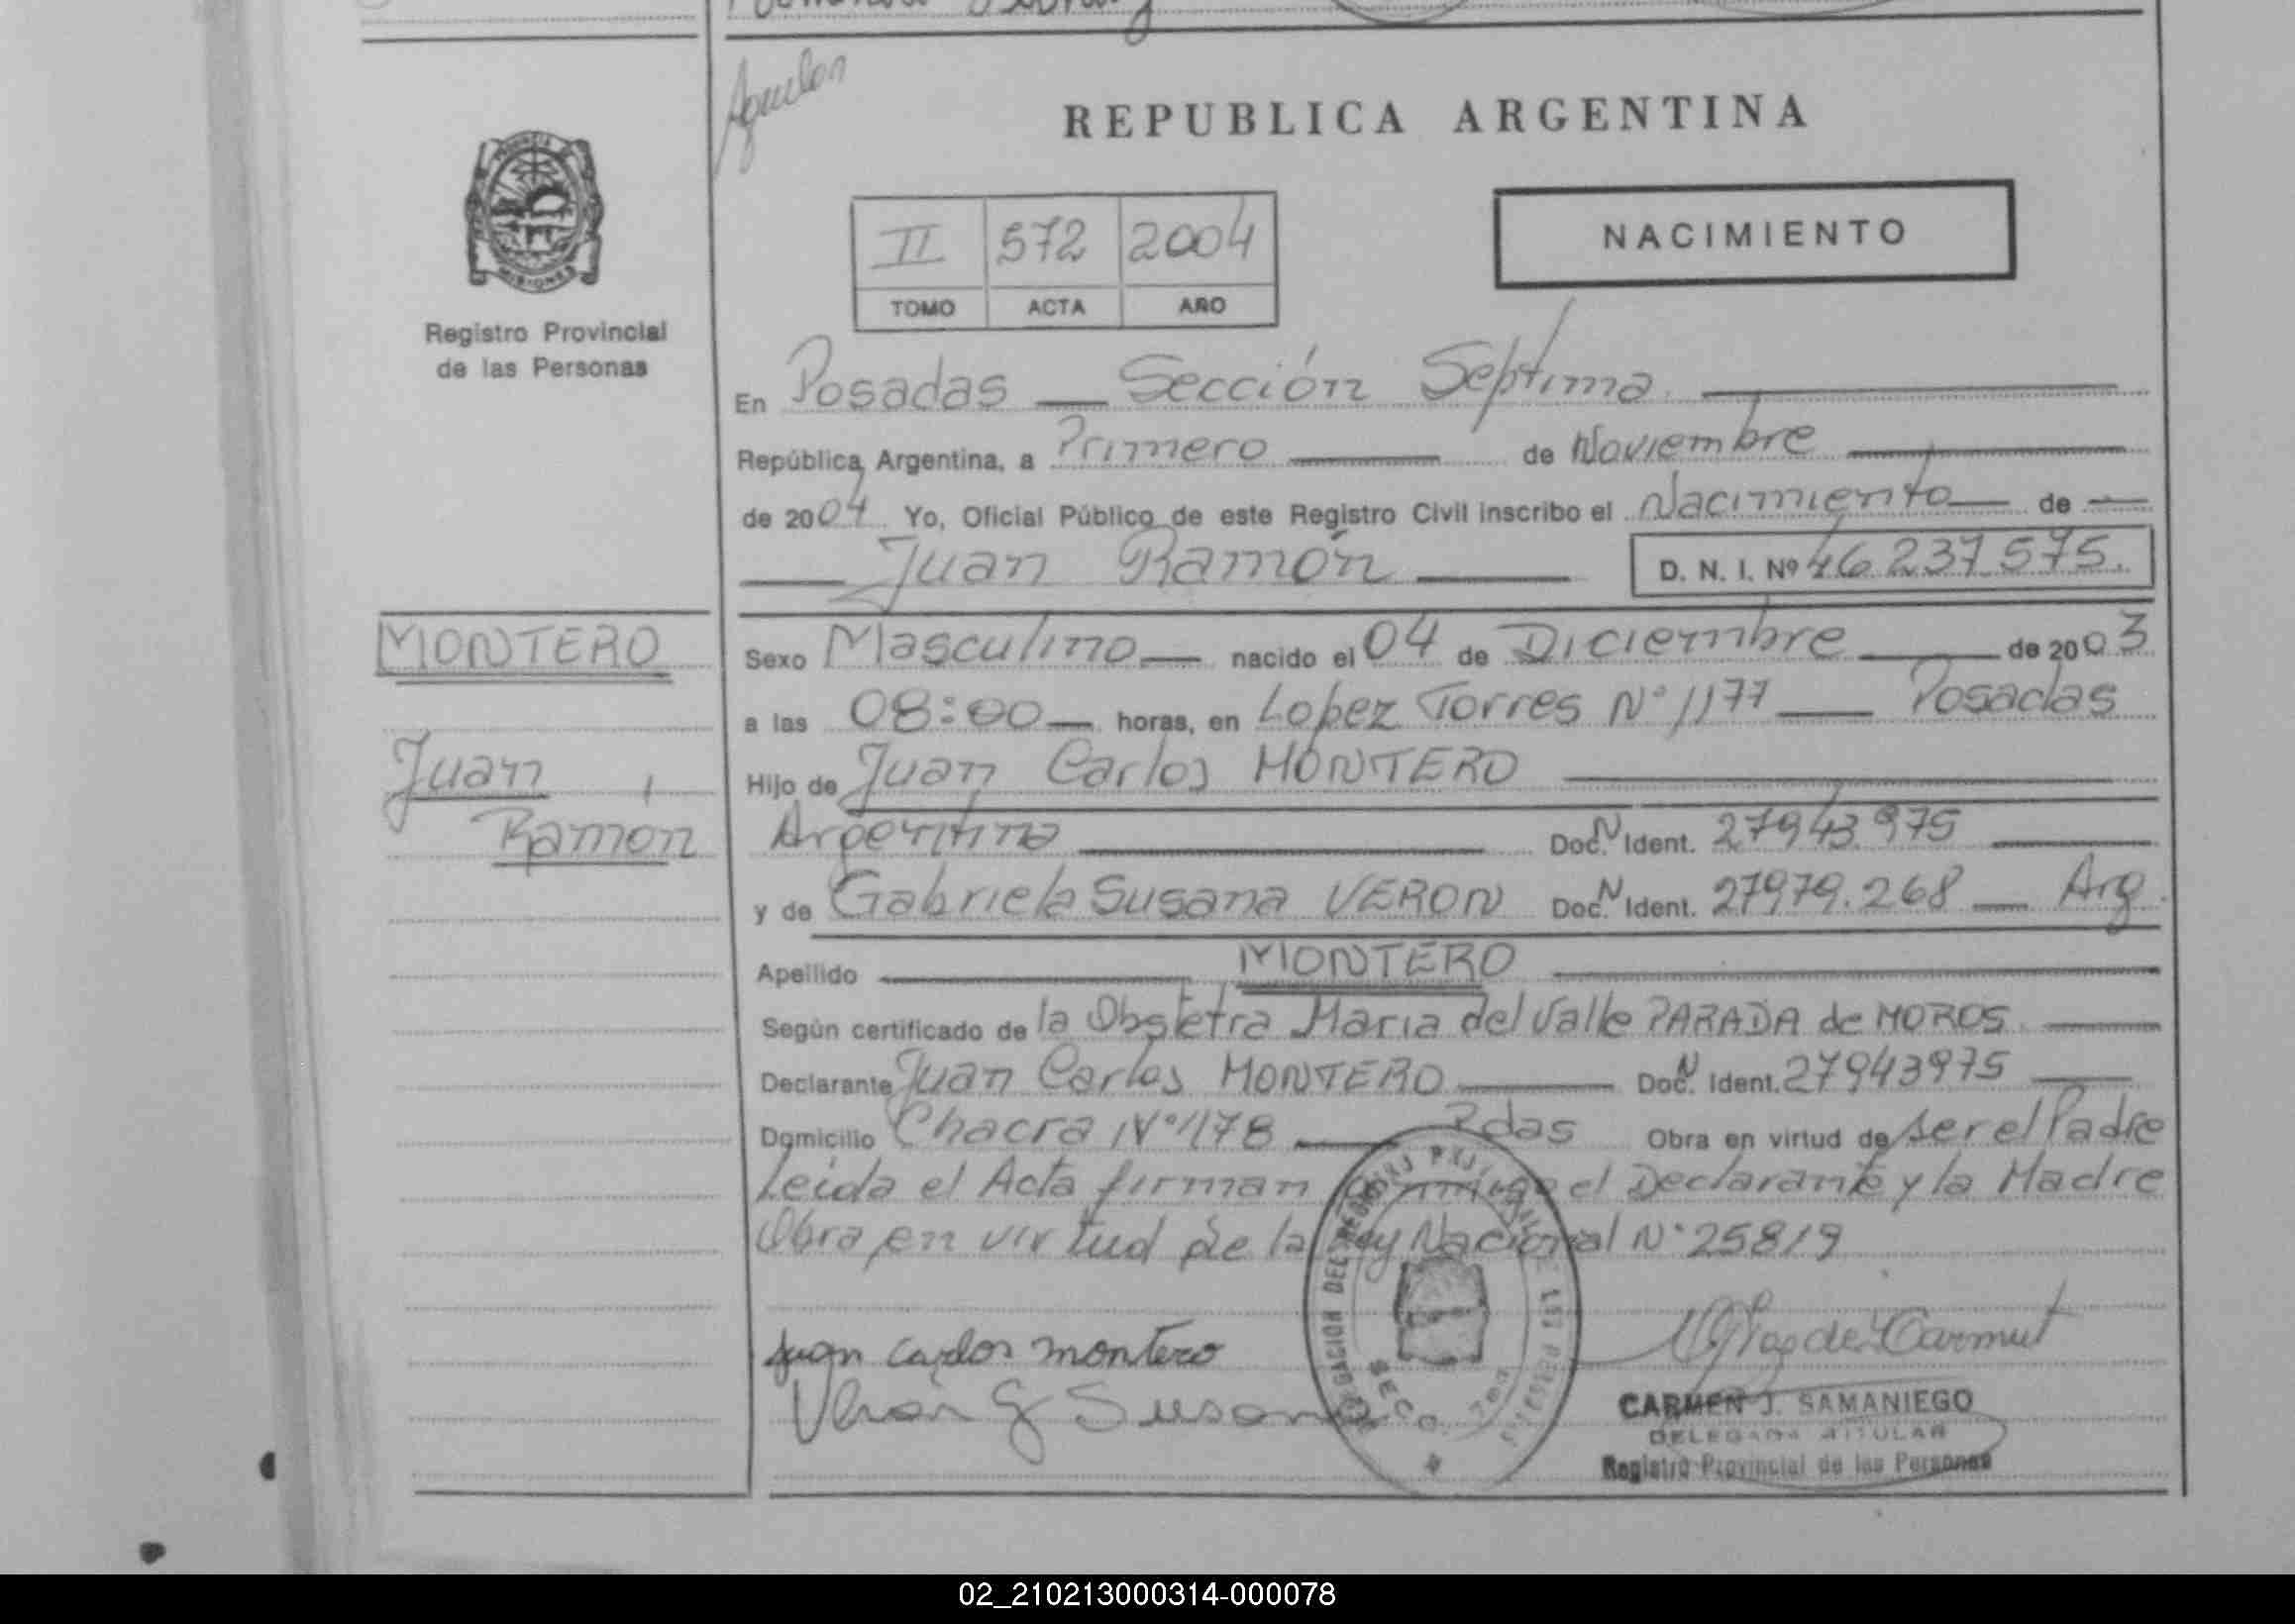 Aguilar
REPUBLICA ARGENTINA
II 572 2004
TOMO ACTA AÑO
NACIMIENTO
PROVINCIA DE
MISIONES
Registro Provincial
de las Personas
En Posadas — Sección Septima
República Argentina, a Primero — de Noviembre
de 2004 Yo, Oficial Público de este Registro Civil inscribo el Nacimiento — de —
— Juan Ramón — D. N. I. Nº 46.237.575.
MONTERO
Juan
Ramon
Sexo Masculino — nacido el 04 de Diciembre — de 2003
a las 08:00 — horas, en Lopez Torres N° 1177 — Posadas
Hijo de Juan Carlos MONTERO
Argentino — Doc. N Ident. 27943.975
y de Gabriela Susana VERON Doc. N Ident. 27979.268 — Arg.
Apellido — MONTERO
Según certificado de la Obstetra Maria del Valle PARADA de MOROS
Declarante Juan Carlos MONTERO — Doc. N Ident. 27943975
Domicilio Chacra N° 178 — Pdas Obra en virtud de ser el Padre
Leida el Acta firman conmigo el Declarante y la Madre
Obra en virtud de la Ley Nacional N° 25819
juan carlos montero
Veron G Susana
CARMEN J. SAMANIEGO
DELEGADA TITULAR
Registro Provincial de las Personas
02_210213000314-000078